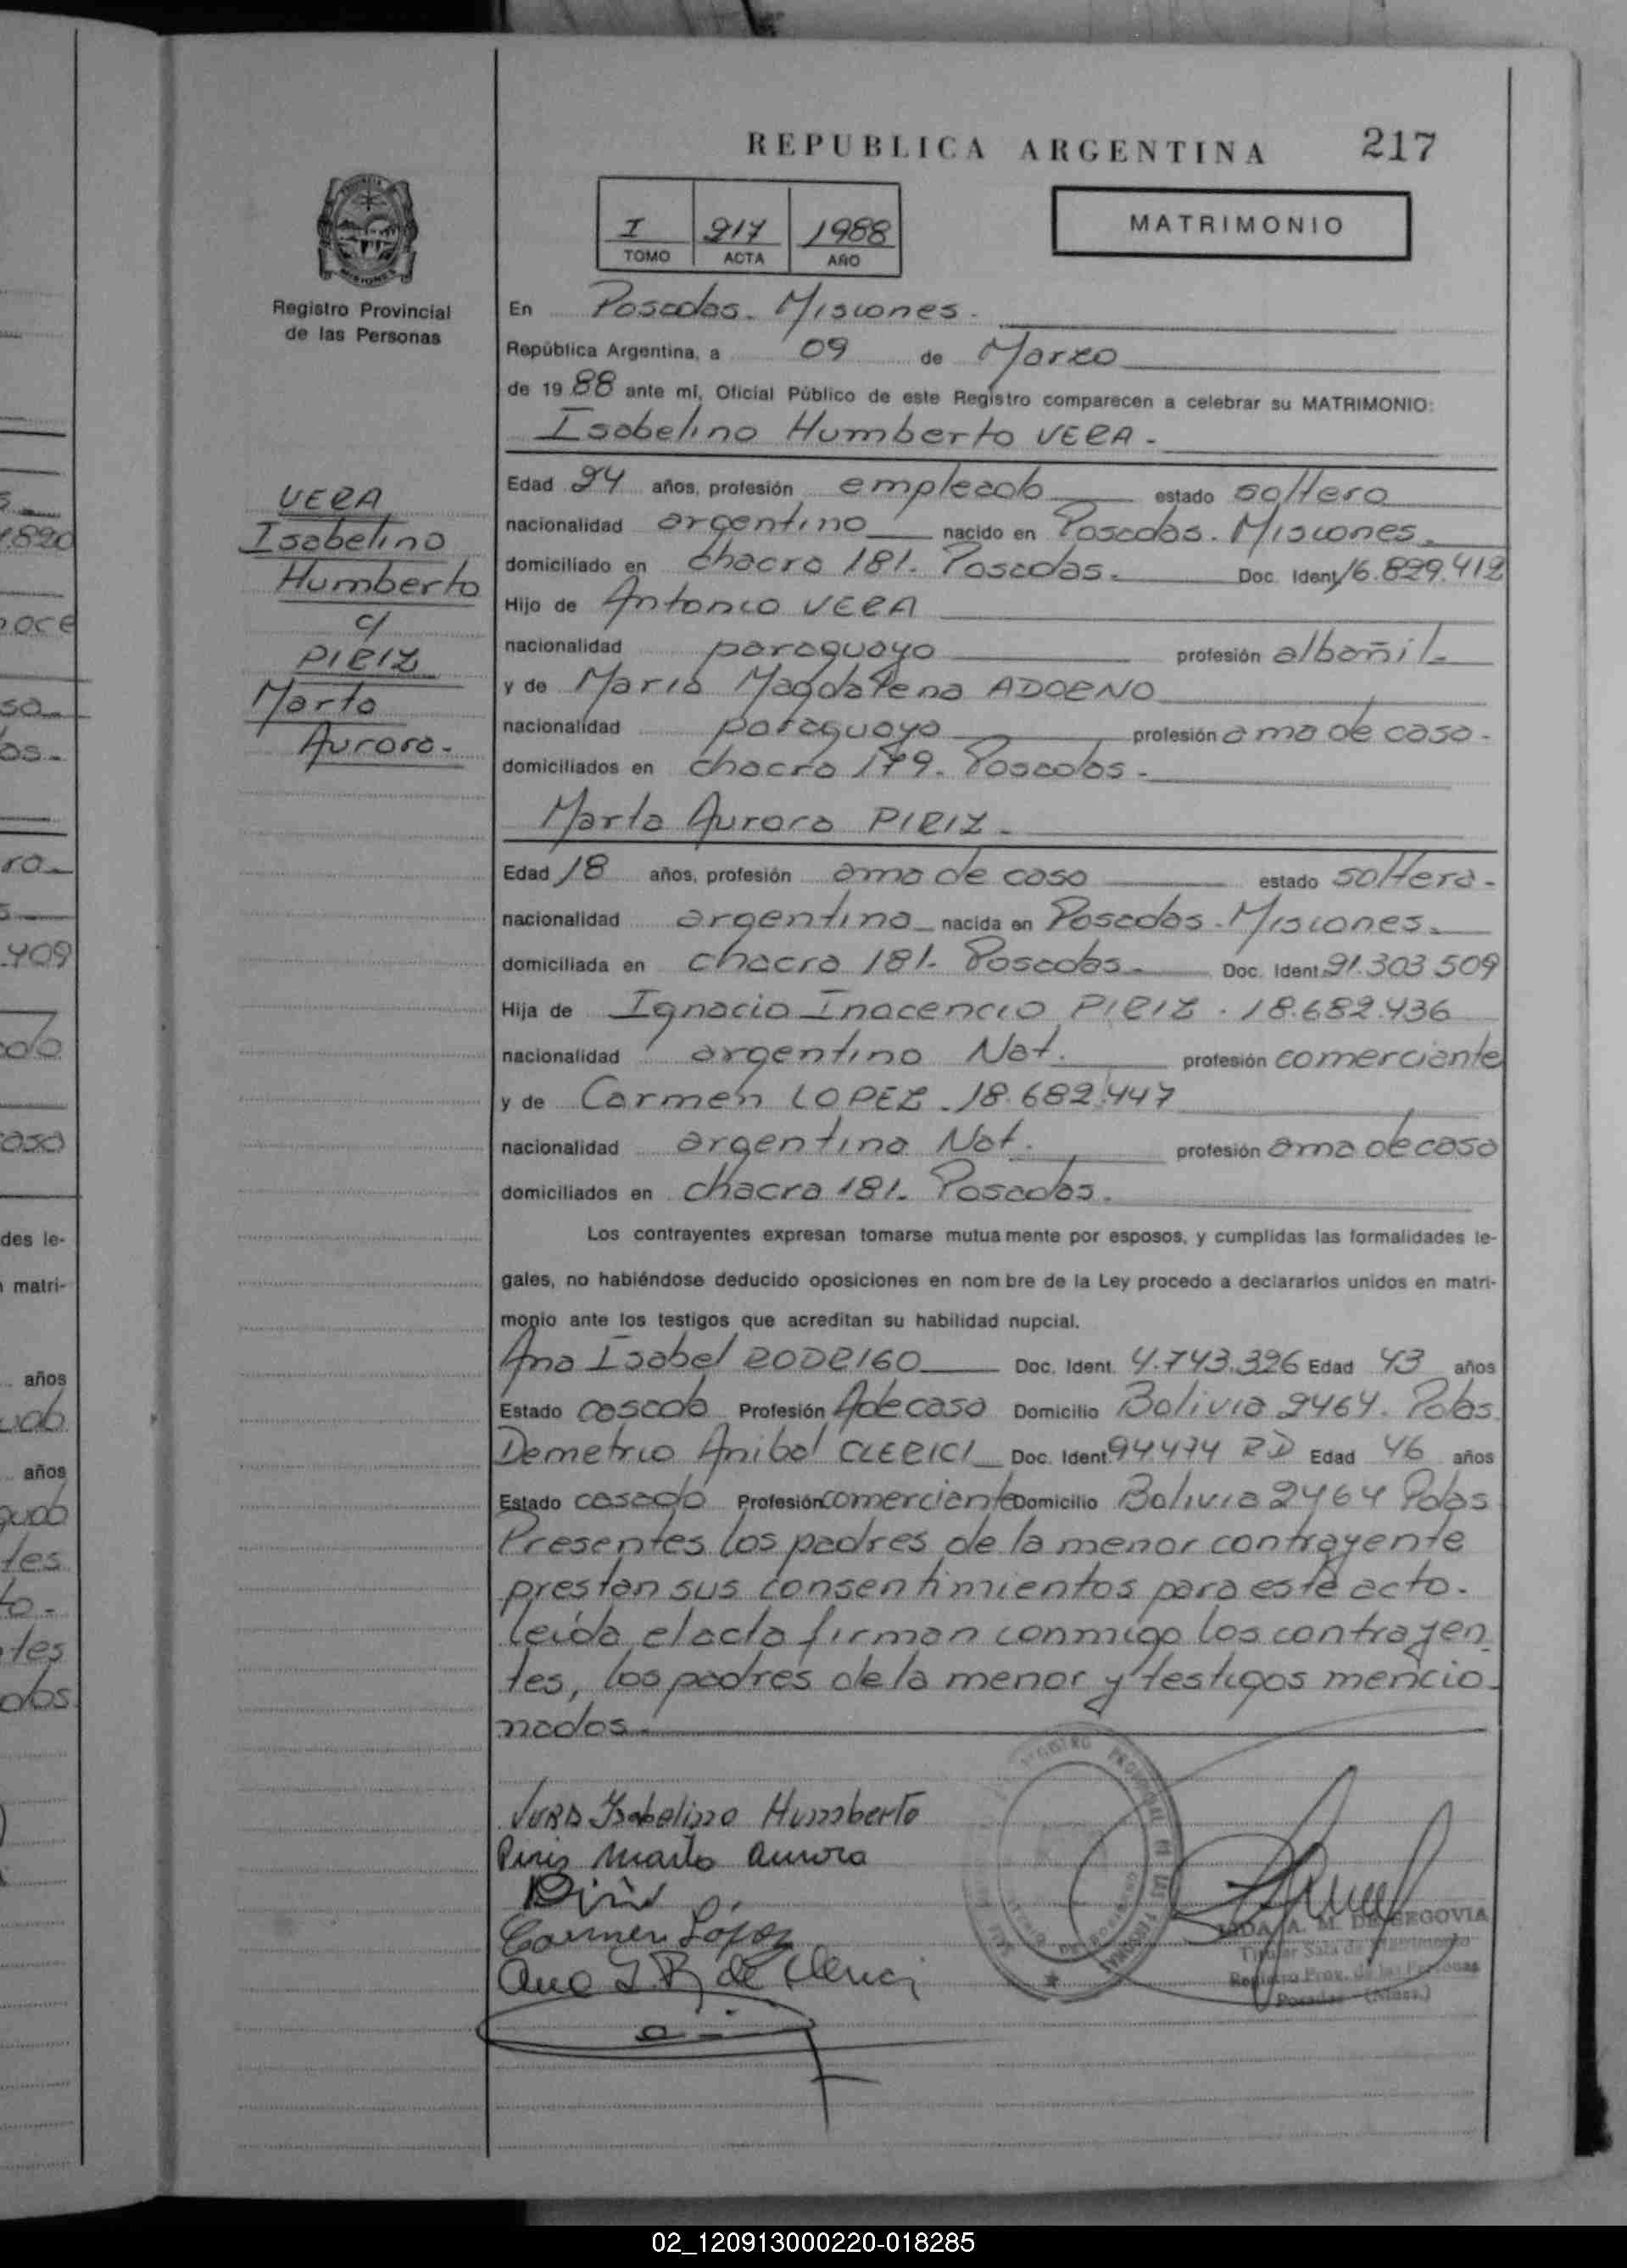 REPUBLICA ARGENTINA 217
I 217 1988
TOMO ACTA AÑO
MATRIMONIO
Registro Provincial
de las Personas
En Posadas. Misiones.
República Argentina, a 09 de Marzo
de 1988 ante mi, Oficial Público de este Registro comparecen a celebrar su MATRIMONIO:
Isabelino Humberto VERA.
Edad 24 años, profesión empleado estado soltero
nacionalidad argentino nacido en Posadas. Misiones.
domiciliado en chacra 181. Posadas. Doc. Ident. 16.829.412
Hijo de Antonio VERA
nacionalidad paraguayo profesión albañil
y de María Magdalena ADORNO
nacionalidad paraguaya profesión ama de casa.
domiciliados en chacra 179. Posadas.
Marta Aurora PIRIZ.
Edad 18 años, profesión ama de casa estado soltera.
nacionalidad argentina nacida en Posadas. Misiones.
domiciliada en chacra 181. Posadas. Doc. Ident. 21.303.509
Hija de Ignacio Inocencio PIRIZ. 18.682.436
nacionalidad argentino Nat. profesión comerciante
y de Carmen LOPEZ. 18.682.447
nacionalidad argentina Nat. profesión ama de casa
domiciliados en chacra 181. Posadas.
Los contrayentes expresan tomarse mutuamente por esposos, y cumplidas las formalidades le-
gales, no habiéndose deducido oposiciones en nombre de la Ley procedo a declararlos unidos en matri-
monio ante los testigos que acreditan su habilidad nupcial.
Ana Isabel RODRIGO Doc. Ident. 4.743.326 Edad 43 años
Estado casada Profesión A de casa Domicilio Bolivia 2464. Pdas.
Demetrio Anibal CLERICI Doc. Ident. 94.474 RD Edad 46 años
Estado casado Profesión comerciante Domicilio Bolivia 2464 Pdas
Presentes los padres de la menor contrayente
prestan sus consentimientos para este acto.
Leída el acta firman conmigo los contrayen-
tes, los padres de la menor y testigos mencio-
nados.
VERA Isabelino Humberto
Piriz Marta Aurora
Piriz
Carmen López
Ana I. R. de Clerici
REGISTRO PROVINCIAL DE LAS PERSONAS
A. M. DE SEGOVIA
Titular Sala de Matrimonio
Registro Prov. de las Personas
Posadas - (Mnes.)
VERA
Isabelino
Humberto
c/
PIRIZ
Marta
Aurora.
des le-
matri-
años
años
02_120913000220-018285